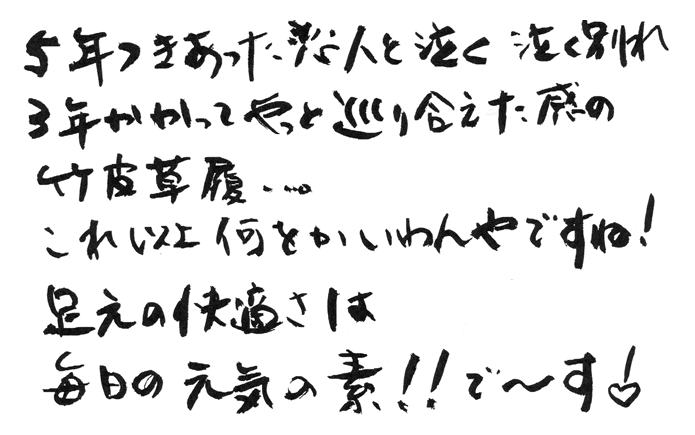 5年つきあった彼な人と泣く泣く別れ
3年かかってやっと巡り合えた感の
竹皮草履...。
これ以上何をかいわんやですね!
足元の快適さは
毎日の元気の素!!で〜す♡